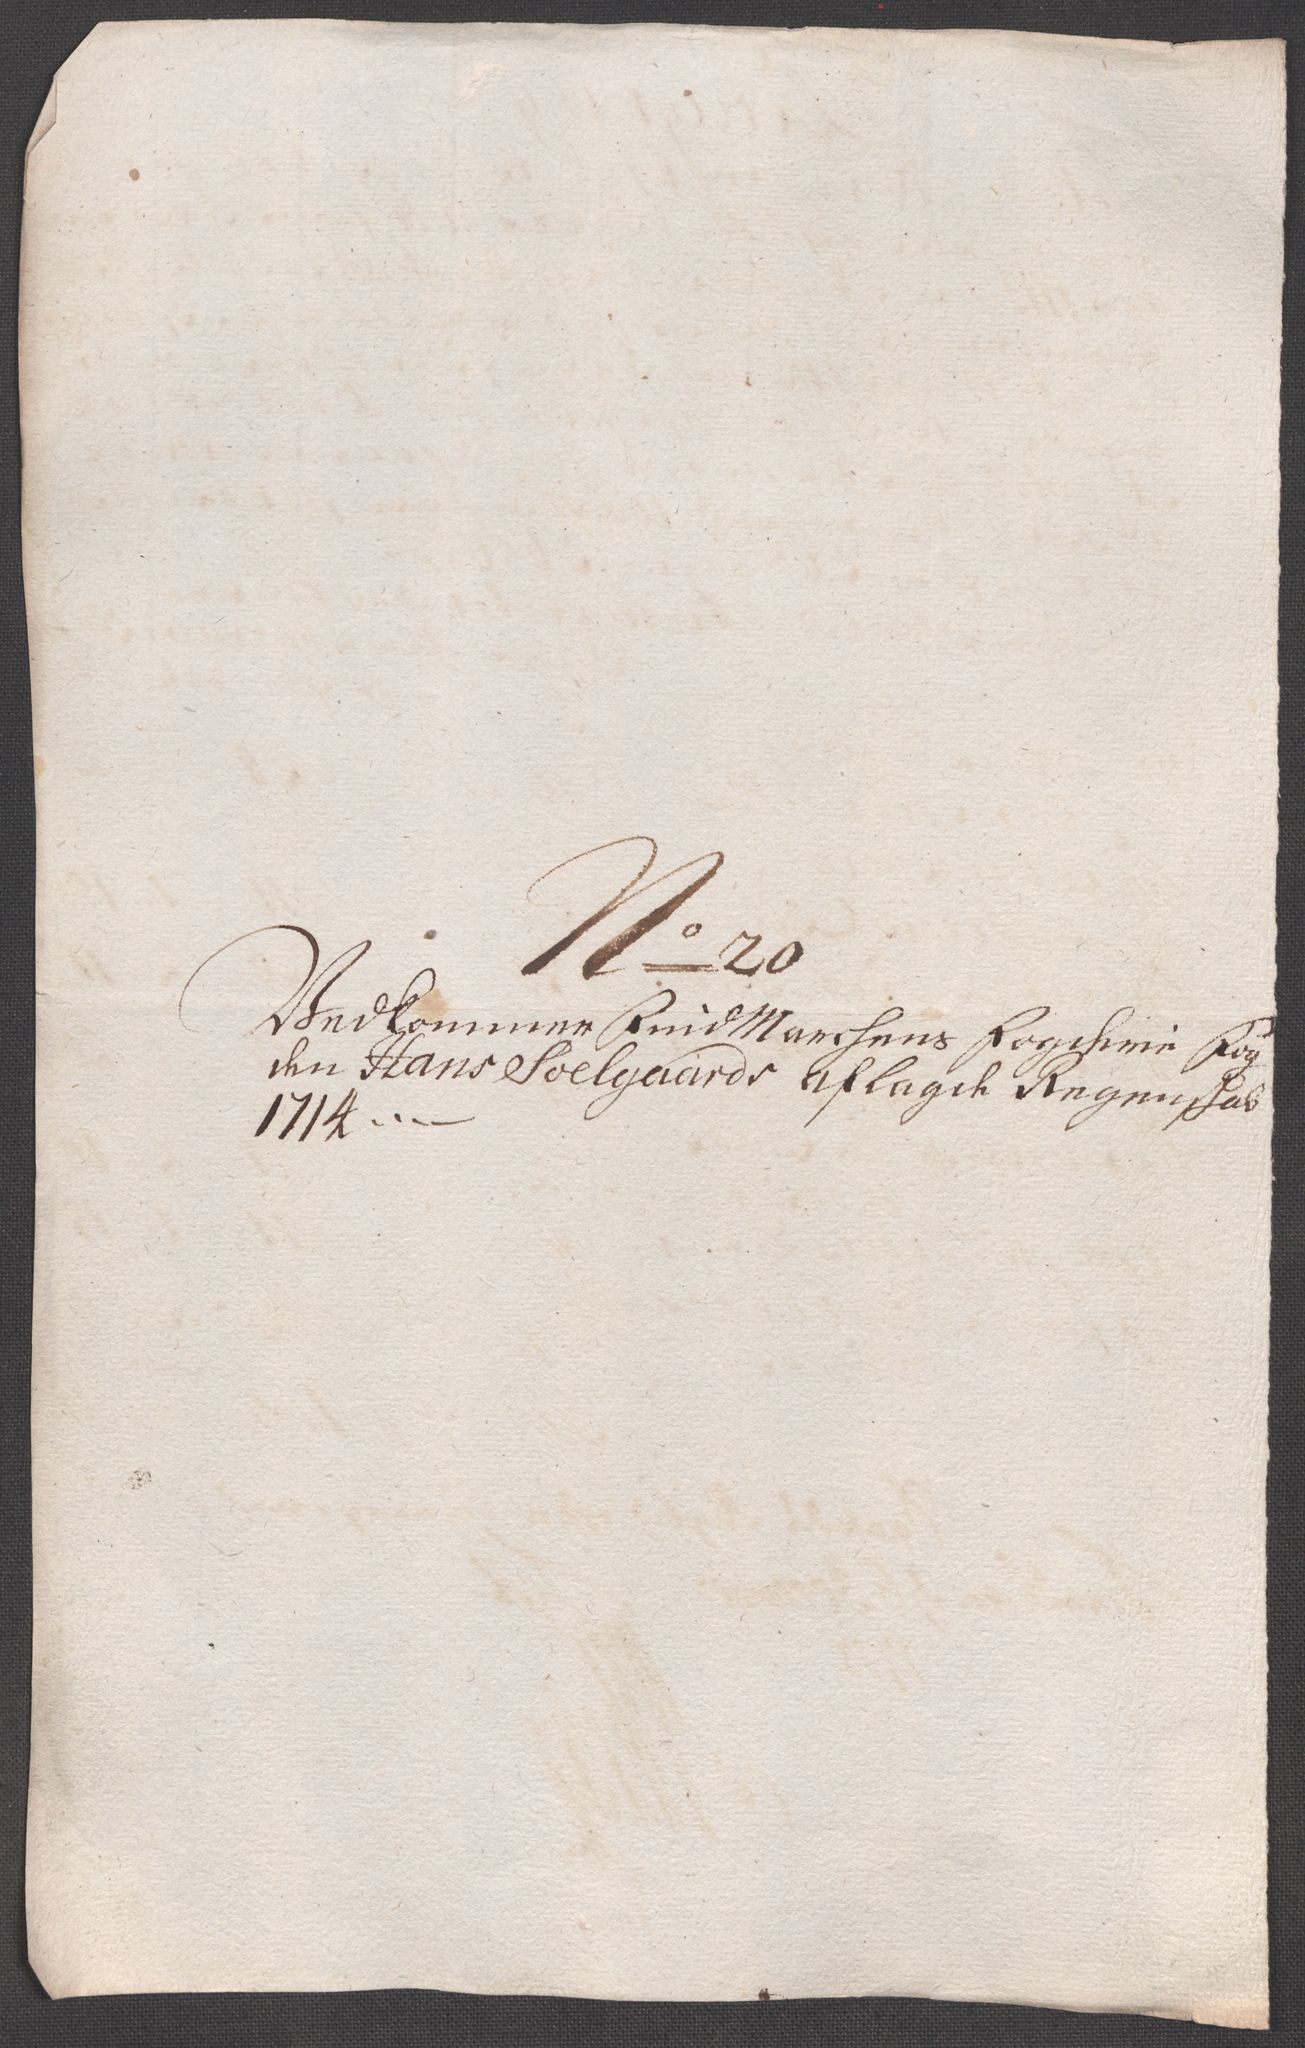 No 20
Vedkommer FindMarchens Fogderie Fog
den Hans Soelgaards aflagde Regenskab
1714 . . —